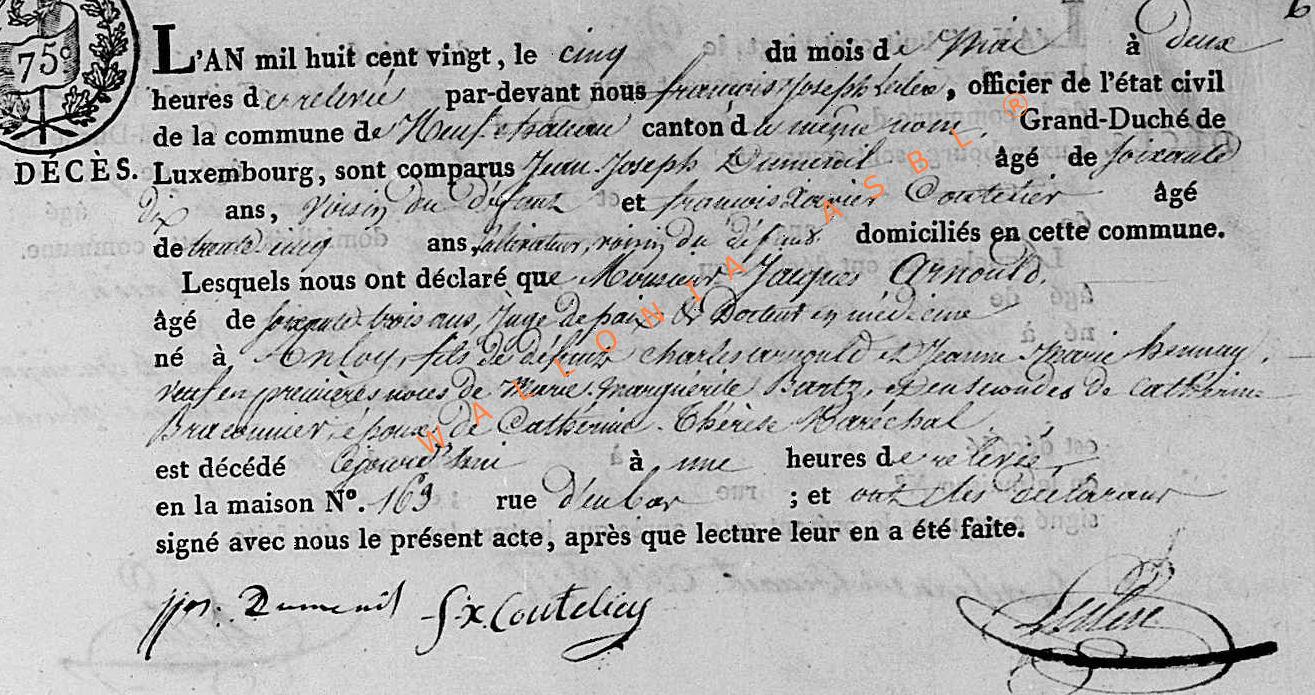 75c
L'AN mil huit cent vingt, le cinq du mois de Mai à deux
heures de relevée par-devant nous françois Joseph, officier de l'état civil
de la commune de Neufchateau canton du même nom. Grand-Duché de
DÉCÈS. Luxembourg, sont comparus Jean Joseph Dumenil âgé de soixante
dix ans, voisin du défunt et françois Xavier Coutelier âgé
de trente cinq ans, voisin du défunt domiciliés en cette commune.
Lesquels nous ont déclaré que Monsieur Jacques Arnould,
âgé de soixante trois ans, Juge de paix & Docteur en médecine
né à Anloy, fils de défunts Charles Arnould et Jeanne Marie hennuy,
veuf en premières noces de Marie Marguérite Bartz, et en secondes de Catherine
Braconnier, époux de Cathérine Thérèse Maréchal.
est décédé cejourd'hui à une heures de relevée
en la maison No. 163 rue ; et ont les déclarans
signé avec nous le présent acte, après que lecture leur en a été faite.
Dumenil f.x. Coutelier
WALLONIA ASBL ®